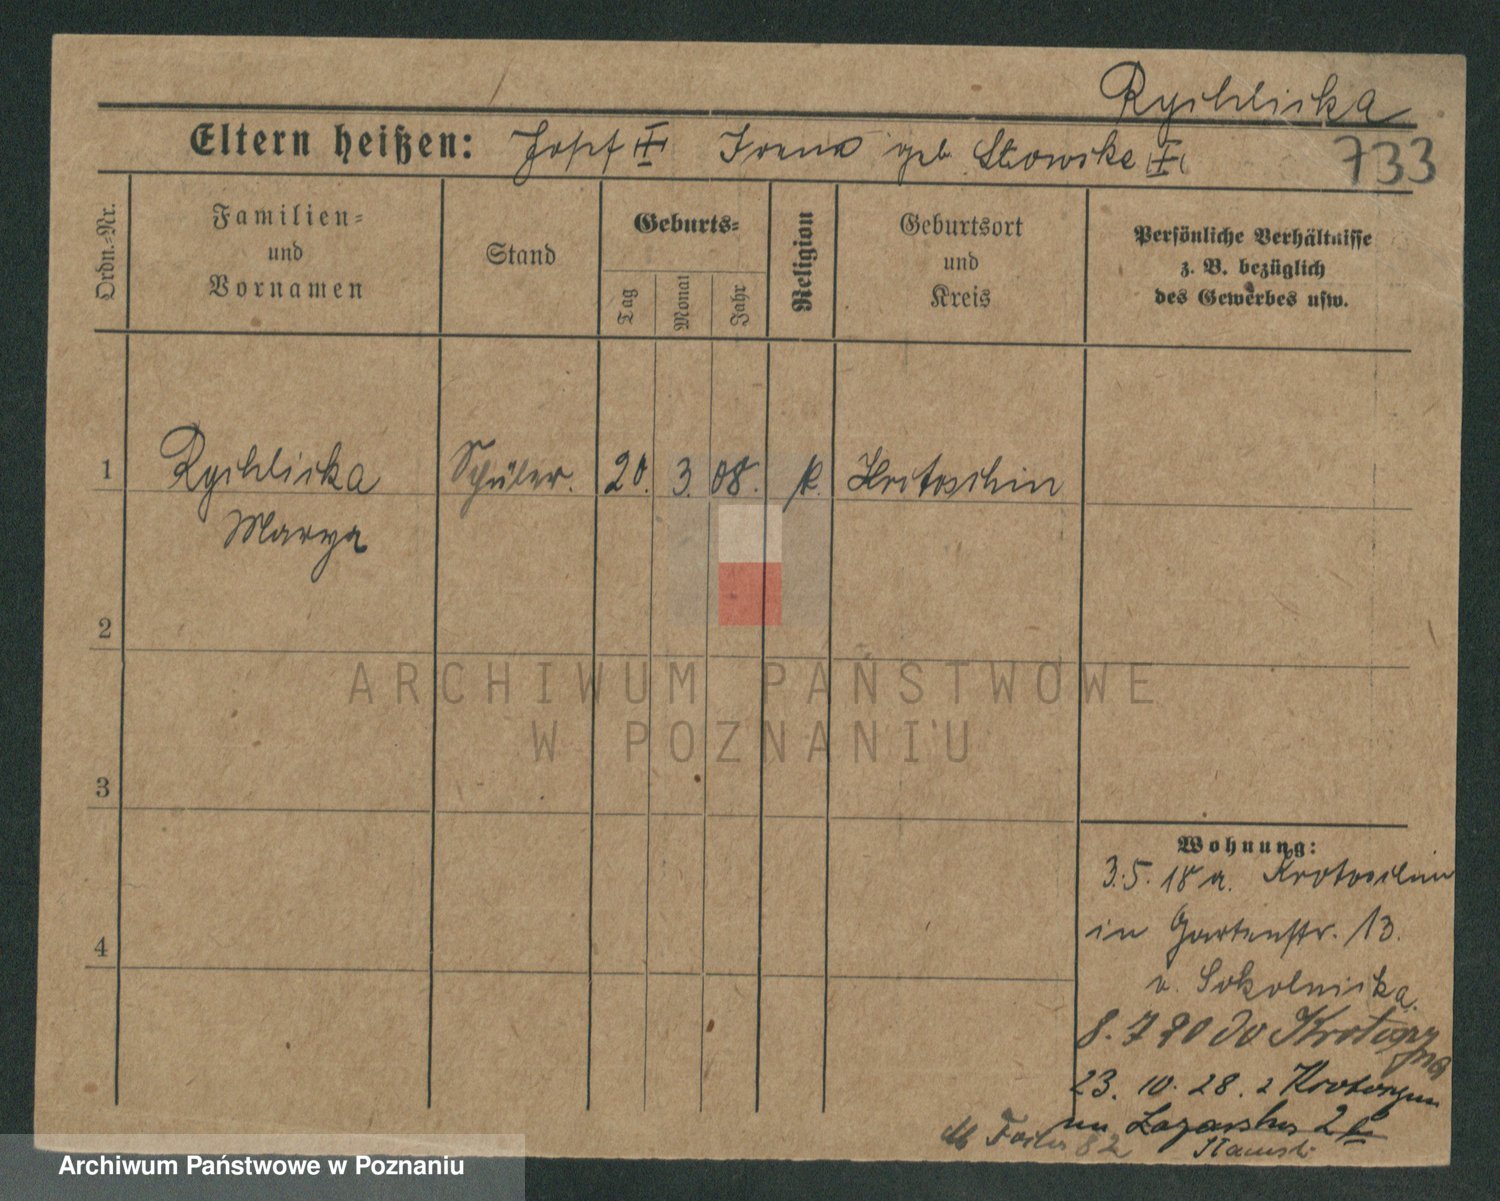 Rychlicka
Eltern heißen: Josef Irena geb.
733
Ordn.-Nr.
Familien-
und
Vornamen
Stand
Geburts-
Tag
Monat
Jahr
Religion
Geburtsort
und
Kreis
Persönliche Verhältnisse
z. B. bezüglich
des Gewerbes usw.
1 Rychlicka Schüler. 20. 3. 08. k. Krotoschin
Marya
2
3
4
Wohnung:
3.5.18 a. Krotoschin
in Gartenstr. 13.
v. Sokolnicka.
8. 7 20 do Krotoszyna
23. 10. 28. z Krotoszyna
2
82
ARCHIWUM PAŃSTWOWE
W POZNANIU
Archiwum Państwowe w Poznaniu